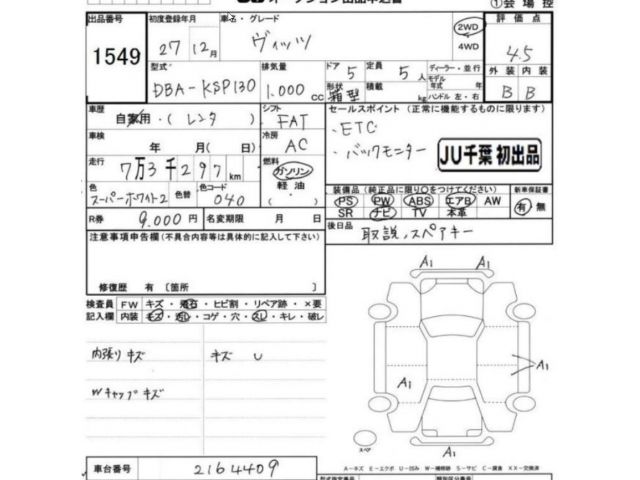 ①会場控
出品番号 初度登録年月 車名・グレード 2WD 4WD 評価点
1549 27年 12月 ヴィッツ 4.5
型式 DBA-KSP130 排気量 1.000 cc ドア 5 形状 箱型 定員 5人 積載 kg ディーラー・並行 モデル年式 年 ハンドル 左・右 外装 内装 B B
車歴 自家用・(レンタ シフト FAT セールスポイント (正常に機能するものに限ります)
車検 年 月(日) 冷房 AC ・ETC
走行 7万3千297km 燃料 ガソリン 軽油 ・バックモニター JU千葉 初出品
色 スーパーホワイト2 色替 色コード 040 装備品(純正品に限り○をつけてください) 新車保証書
R券 9.000円 名変期限 月 日 PS PW ABS エアB AW 有 無
SR ナビ TV 本革
注意事項申告欄(不具合内容等は具体的に記入して下さい) 後日品 取説、スペアキー
修復歴 有 〔箇所 〕
検査員記入欄 FW キズ・飛石・ヒビ割・リペア跡・×要
内装 キズ・汚レ・コゲ・穴・スレ・キレ・破レ
内張りキズ キズ U
Wキャップキズ
A1 A1
A1 A1
A1
スペア
車台番号 2164409
A-キズ E-エクボ U-凹み W-補修跡 S-サビ C-腐食 XX-交換済